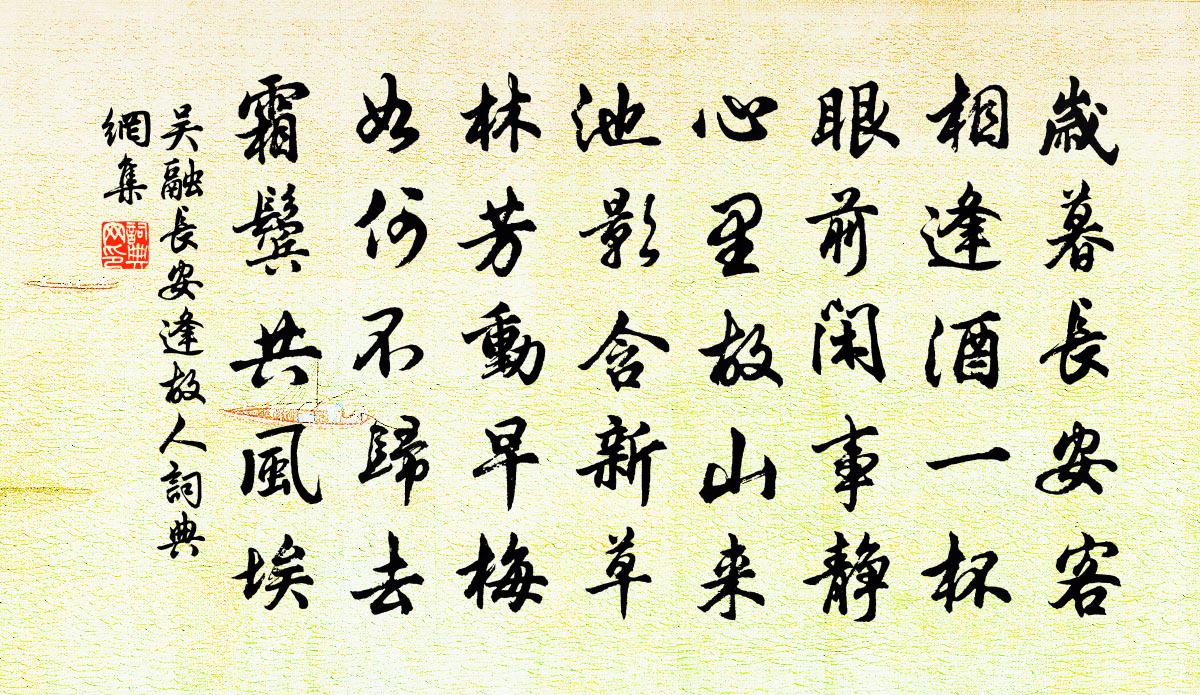 歲暮長安客
相逢酒一杯
眼前閑事靜
心里故山来
池影含新草
林芳動早梅
如何不歸去
霜鬢共風埃
吴融長安逢故人詞典
網集
詞典
网印